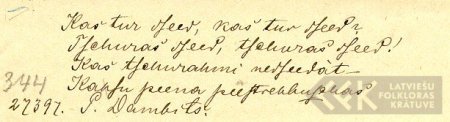 Kas tur dseed, kas tur dseed?
Tschuras dseed, tschuras dseed!
Kas tschurahmi nedseedát
Kahsu peena peestrehbuschas
344
27397. P. Dambits.
LATVIEŠU
FOLKLORAS
KRĀTUVE